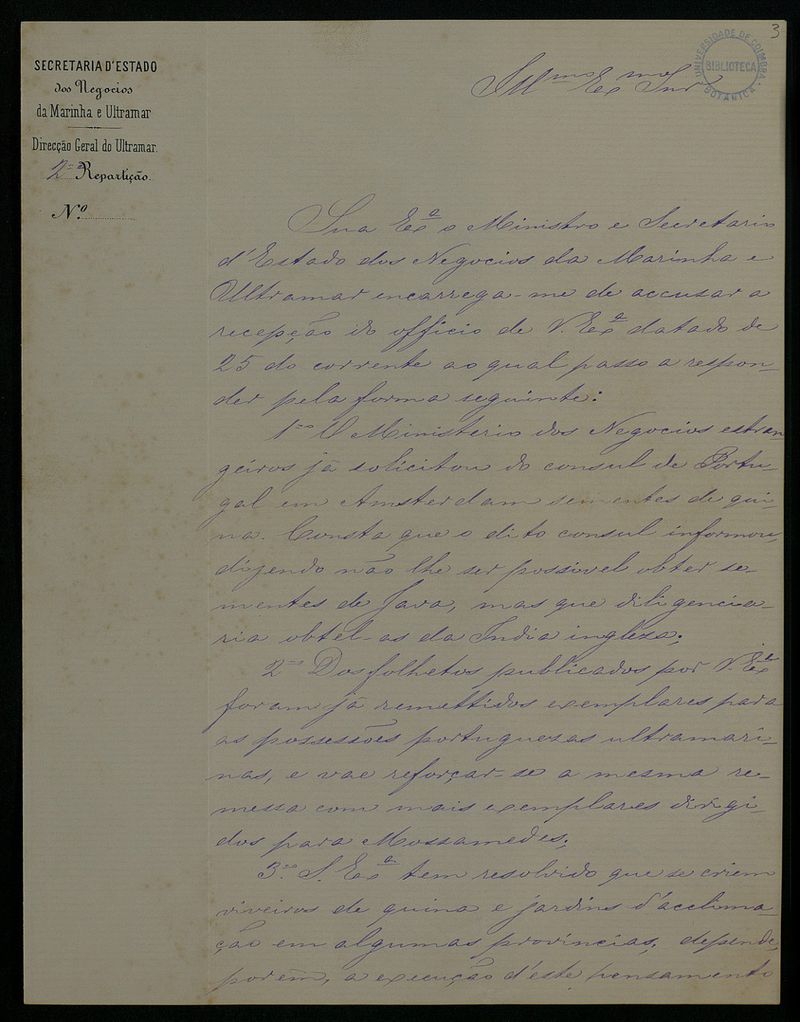 3
UNIVERSIDADE DE COIMBRA
BIBLIOTECA
BOTANICA
SECRETARIA D'ESTADO
dos Negocios
da Marinha e Ultramar
Direcção Geral do Ultramar.
2ª Repartição.
N.º
Illmo Exmo Snr
Sua Exª o Ministro e Secretario
d'Estado dos Negocios da Marinha e
Ultramar encarrega-me de accusar a
recepção do officio de V. Exª datado de
25 do corrente ao qual passo a respon-
der pela forma seguinte:
1º O Ministerio dos Negocios estran
geiros já solicitou do consul de Portu-
gal em Amsterdam sementes de qui-
na. Consta que o dito consul informou,
dizendo não lhe ser possivel obter se-
mentes de Java, mas que diligencia-
ria obtel-as da India ingleza;
2º Dos folhetos publicados por V. Exª
foram já remettidos exemplares para
as possessões portuguezas ultramari-
nas, e vae reforçar-se a mesma re-
messa com mais exemplares dirigi-
dos para Mossamedes;
3º S. Exª tem resolvido que se criem
viveiros de quina e jardins d'acclima-
ção em algumas provincias; depende,
porem, a execução d'este pensamento